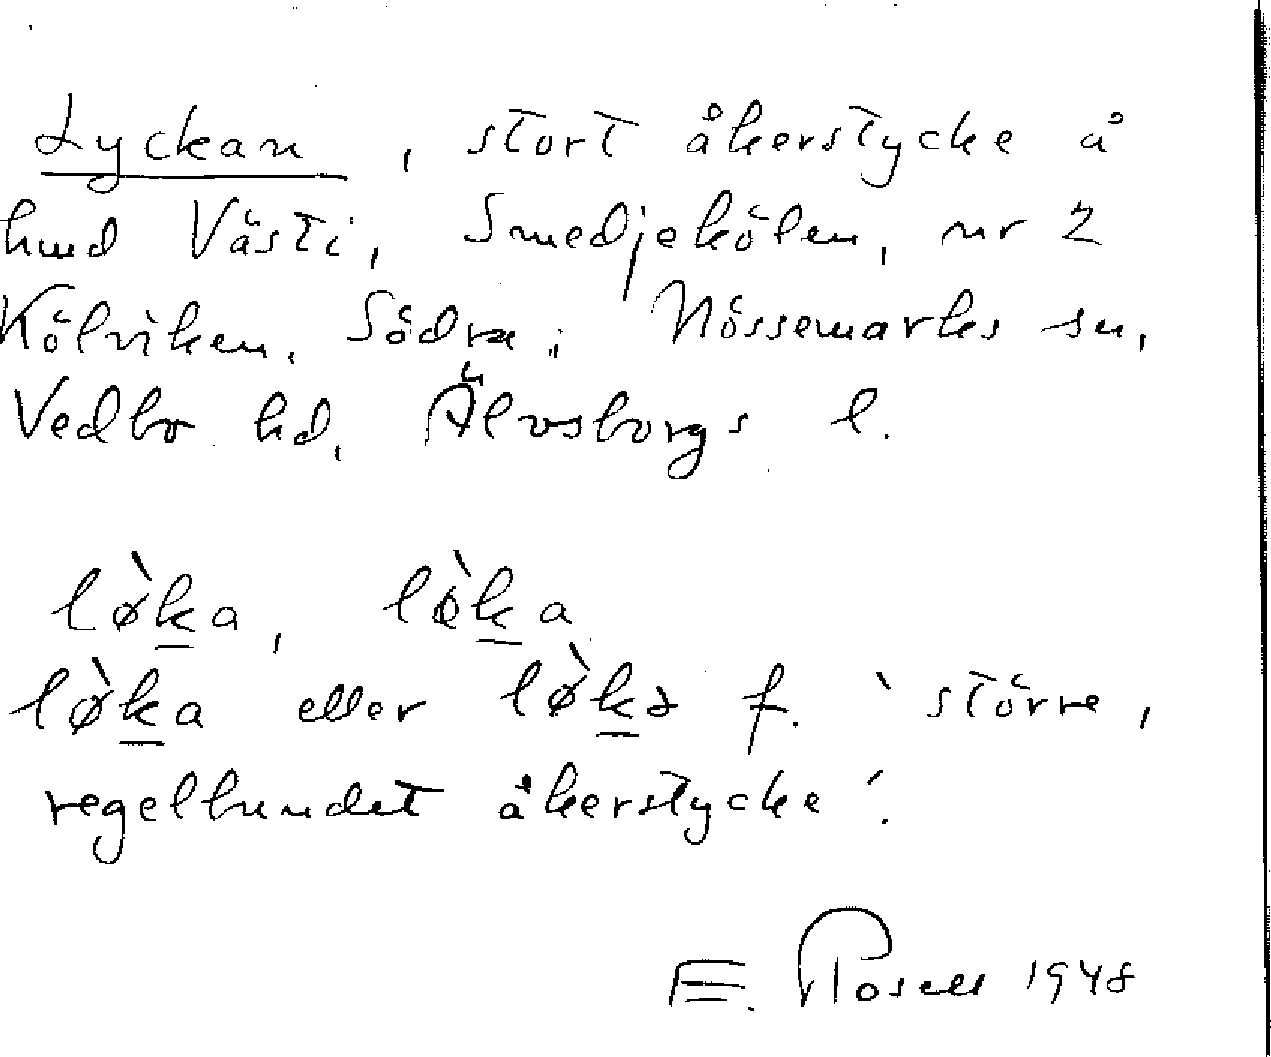 Lyckan, stort åkerstycke å
hmd Västi, Smedjekölen, nr 2
Kölviken, Södra; Nössemarks sn,
Vedbo hd, Älvsborgs l.
lø̀ka, lø̀ka
lø̀ka eller lø̀kə f. 'större,
regelbundet åkerstycke'.
E. Rosell 1948